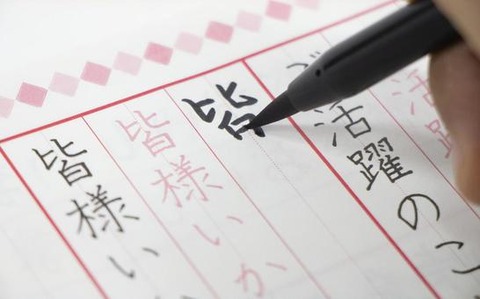 活躍
ご活躍のこ
皆
皆様いか
皆様い